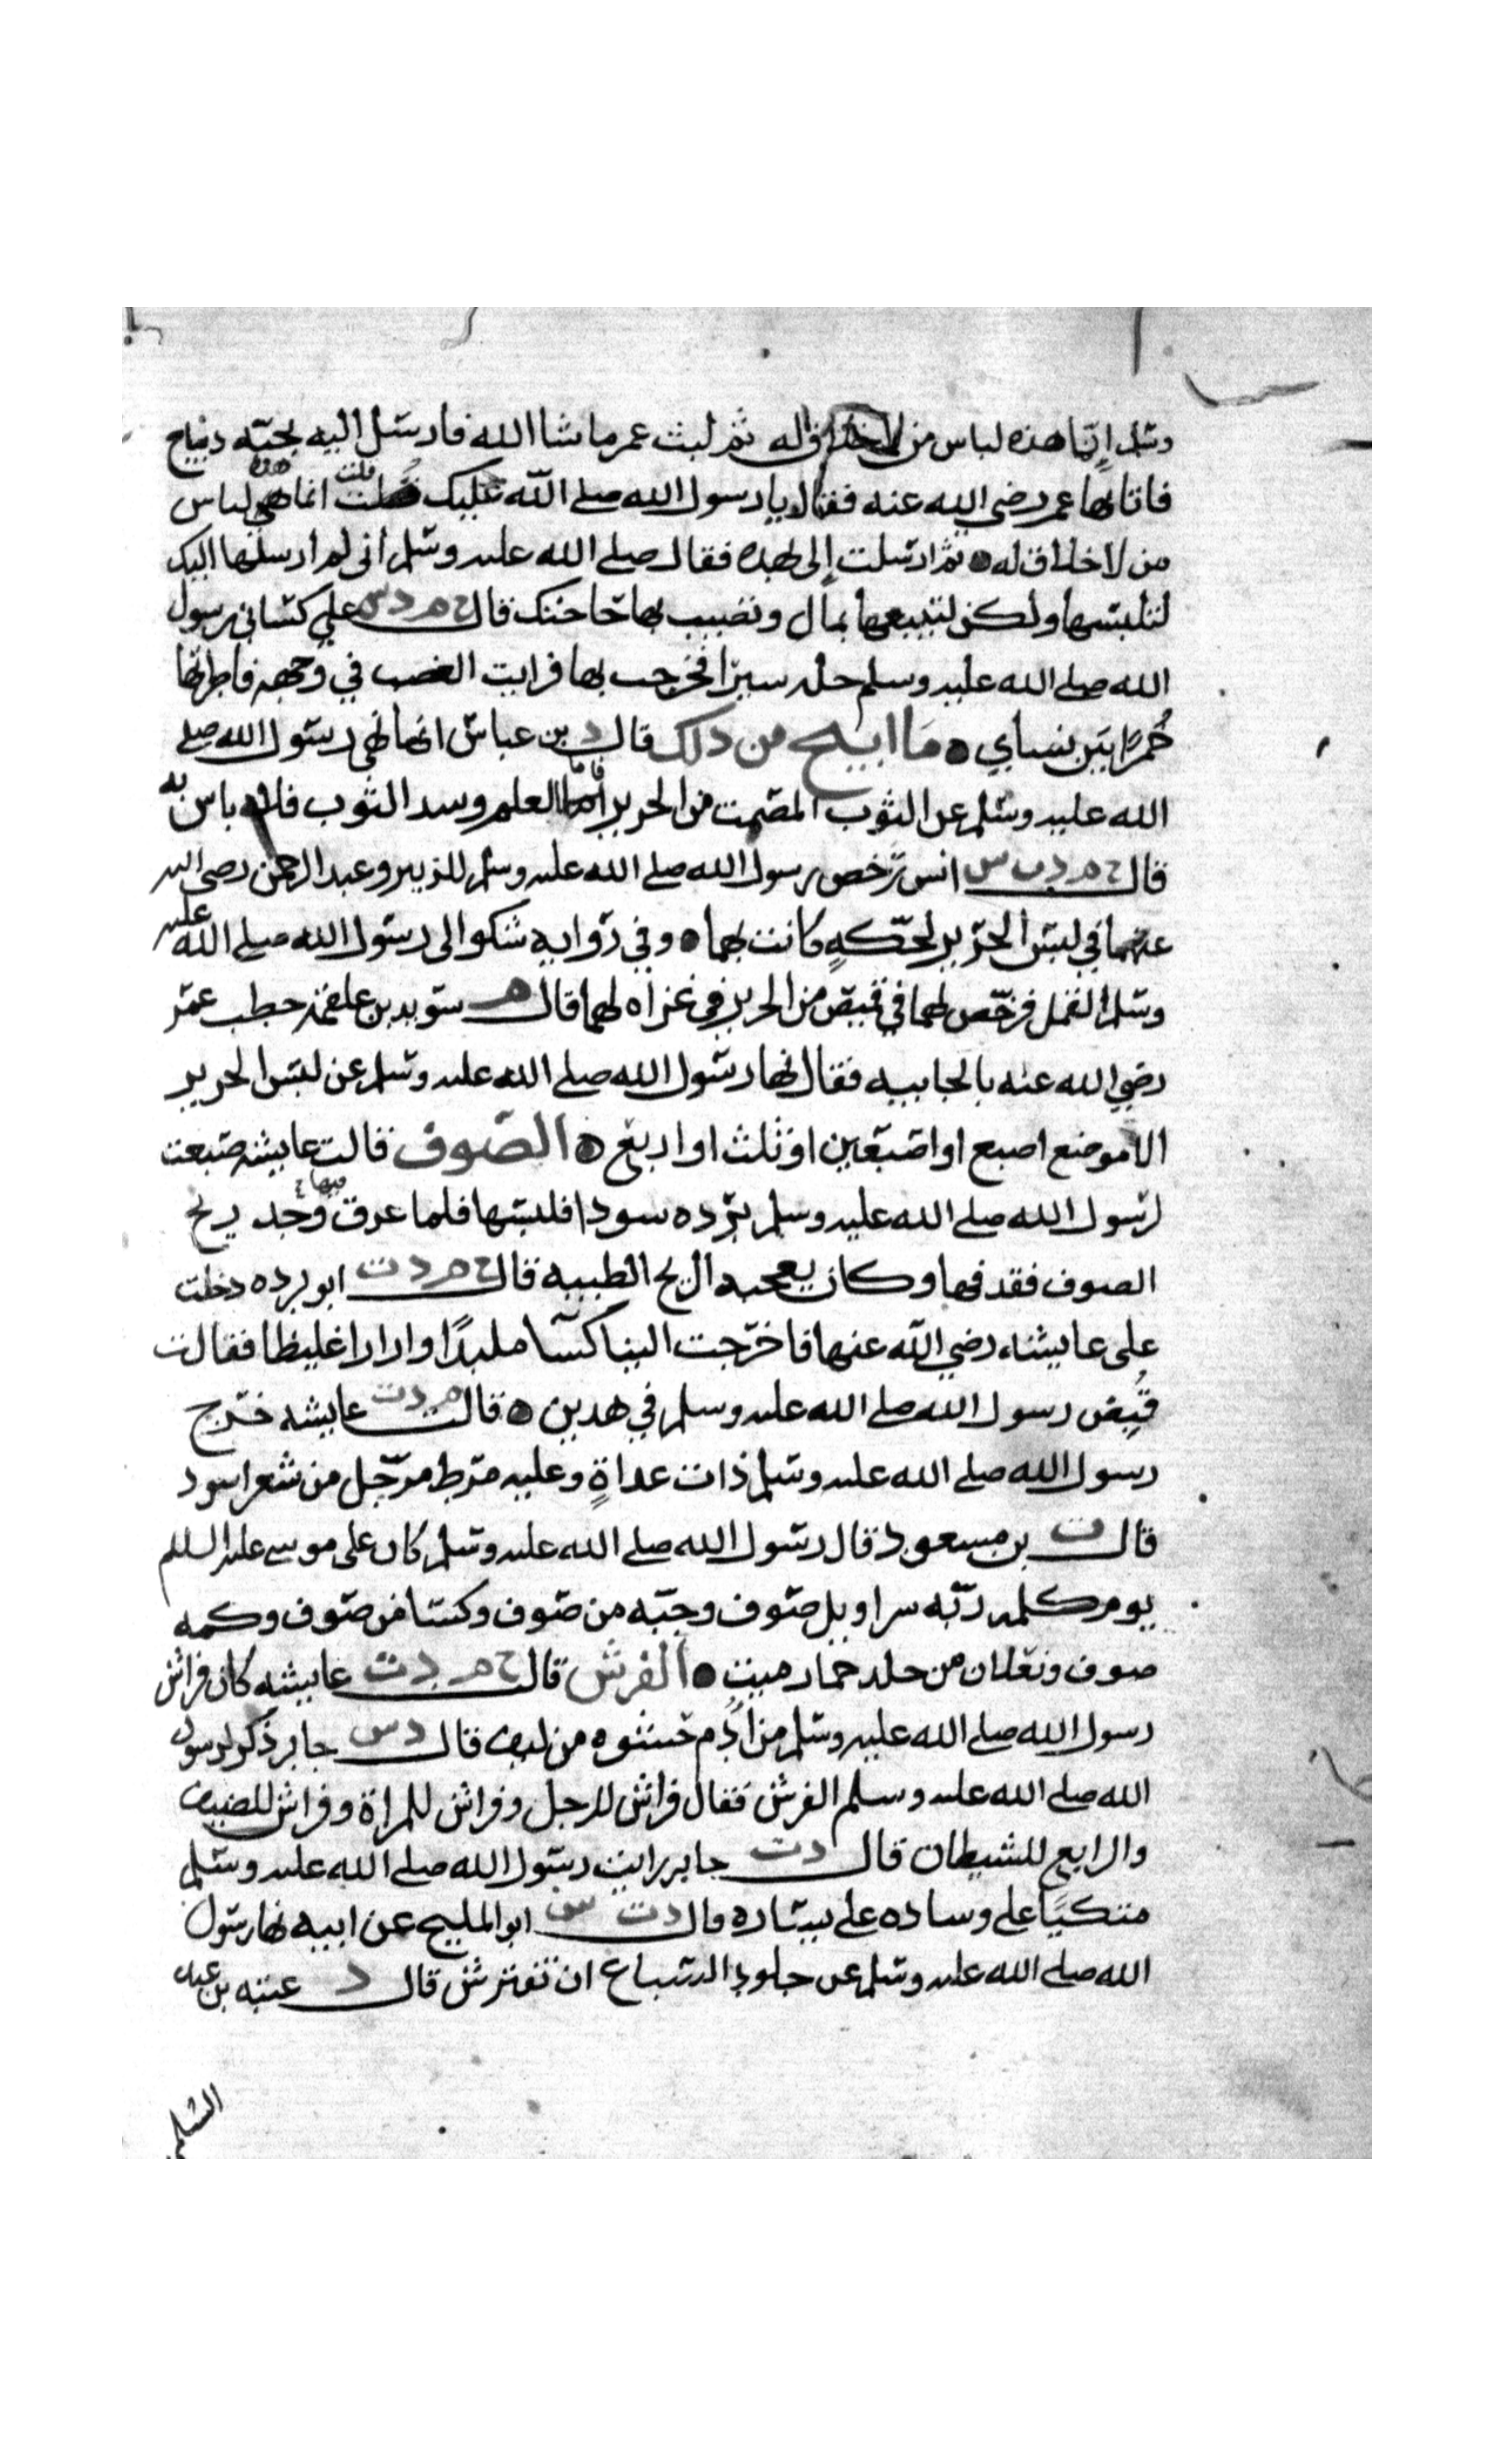 وسلم إنما هذه لباس من لا خلاق له ثم لبث عمر ما شا الله فارسل اليه بجبة ديباج
فاتا بها عمر رضي الله عنه فقال يا رسول الله صلى الله عليك قلت انما هذه لباس
من لا خلاق له ثم ارسلت إلى بهذه فقال صلى الله عليه وسلم أني لم ارسلها اليك
لتلبسها ولكن لتبيعها بمال وتصيب بها حاجتك قال خ م د س علي كساني رسول
الله صلى الله عليه وسلم حله سيرا فخرجت بها فرايت الغضب في وجهه فاطرتها
خُمرًا بين نساي ما ابيح من ذلك قال د بن عباس انما نهى رسول الله صلى
الله عليه وسلم عن الثوب المصمت من الحرير فأما العلم وسدا الثوب فلا باس به
قال خ م د ت س انس رخص رسول الله صلى الله عليه وسلم للزبير وعبد الرحمن رضي الله
عنهما في لبس الحرير لحكةٍ كانت بهما وفي رواية شكوا الى رسول الله صلى الله عليه
وسلم القمل فرخص لهما في قميص من الحرير في غزاه لهما قال م سويد بن علقمة خطب عمر
رضي الله عنه بالجابيه فقال نها رسول الله صلى الله عليه وسلم عن لبس الحرير
الا موضع اصبع او اصبعين او ثلث او اربع الصوف قالت عايشه صبعت
لرسول الله صلى الله عليه وسلم برده سودا فلبسها فلما عرق فيها وجد ريح
الصوف فقدفها وكان يعجبه الريح الطيبه قال خ م د ت ابو برده دخلت
على عايشه رضي الله عنها فاخرجت الينا كسآ ملبدًا وازارا غليظا فقالت
قُبِض رسول الله صلى الله عليه وسلم في هدين قالت م د ت عايشه خرج
رسول الله صلى الله عليه وسلم ذات عداةٍ وعليه مرط مرجل من شعر اسود
قال ت بن مسعود قال رسول الله صلى الله عليه وسلم كان على موسى عليه السلم
يوم كلمه ربه سراويل صوف وجبه من صوف وكسا من صوف وكمه
صوف ونعلان من جلد حمار ميت الفرش قال خ م د ت عايشه كان فراش
رسول الله صلى الله عليه وسلم من أُدُم حشوه من ليف قال د س جابر ذكر لرسول
الله صلى الله عليه وسلم الفرش فقال فراش للرجل وفراش للمراة وفراش للضيف
والرابع للشيطان قال د ت جابر رايت رسول الله صلى الله عليه وسلم
متكيًا على وساده على يساره قال د ت س ابو المليح عن ابيه نها رسول
الله صلى الله عليه وسلم عن جلود السباع ان تفترش قال د عتبه بن عبد
السلمي